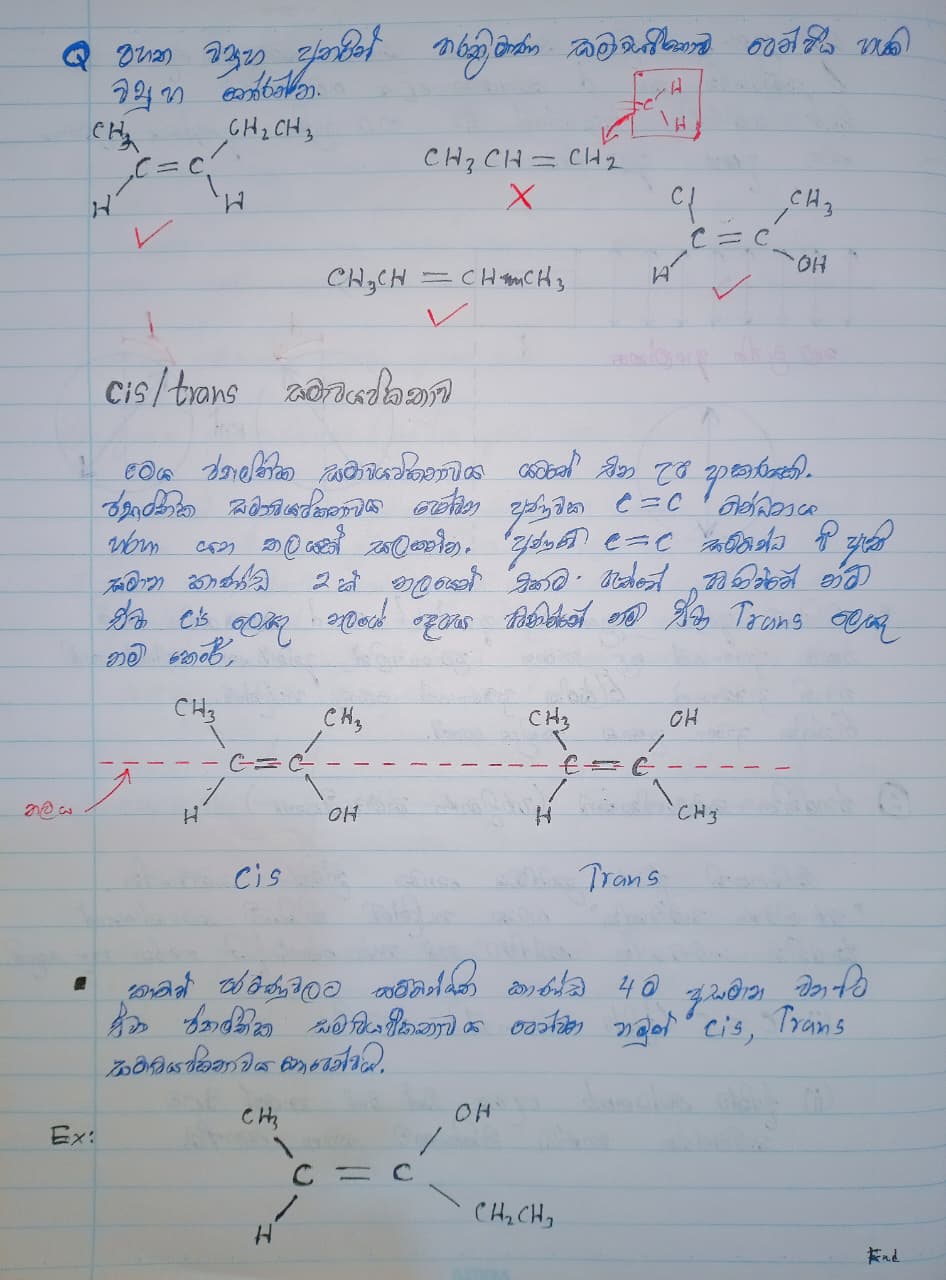 Q පහත ව්‍යුහ අතරින් ත්‍රිමාණ සමාවයවිකතාව පෙන්විය හැකි
ව්‍යුහ තෝරන්න.
CH3 CH2CH3
C = C
H H
= C H H
CH3CH = CH2
Cl CH3
C = C
H OH
CH3CH = CH CH3
cis/trans සමාවයවිකතාව
මෙය සමාවයවිකතාවය යටතේ එන උප ආකාරයකි.
සමාවයවිකතාවය පෙන්වන අණුවක C = C බන්ධනය
හරහා යන තලයක් සලකන්න. අණුවේ C = C සම්බන්ධ වී ඇති
සමාන කාණ්ඩ 2ක් තලයෙන් එකම පැත්තේ පවතින්නේ නම්
ඒවා cis ලෙසද තලයේ දෙපස පවතින්නේ නම් ඒවා Trans ලෙසද
නම් කෙරේ.
CH3 CH3 CH3 OH
C = C C = C
තලය
H OH H CH3
Cis Trans
▪ කාබන් පරමාණුවලට සම්බන්ධිත කාණ්ඩ 4ම අසමාන වන විට
ඒවා සමාවයවිකතාවය පෙන්වන නමුත් cis, Trans
සමාවයවිකතාවය නොපෙන්වයි.
Ex:
CH3 OH
C = C
H CH2CH3
End